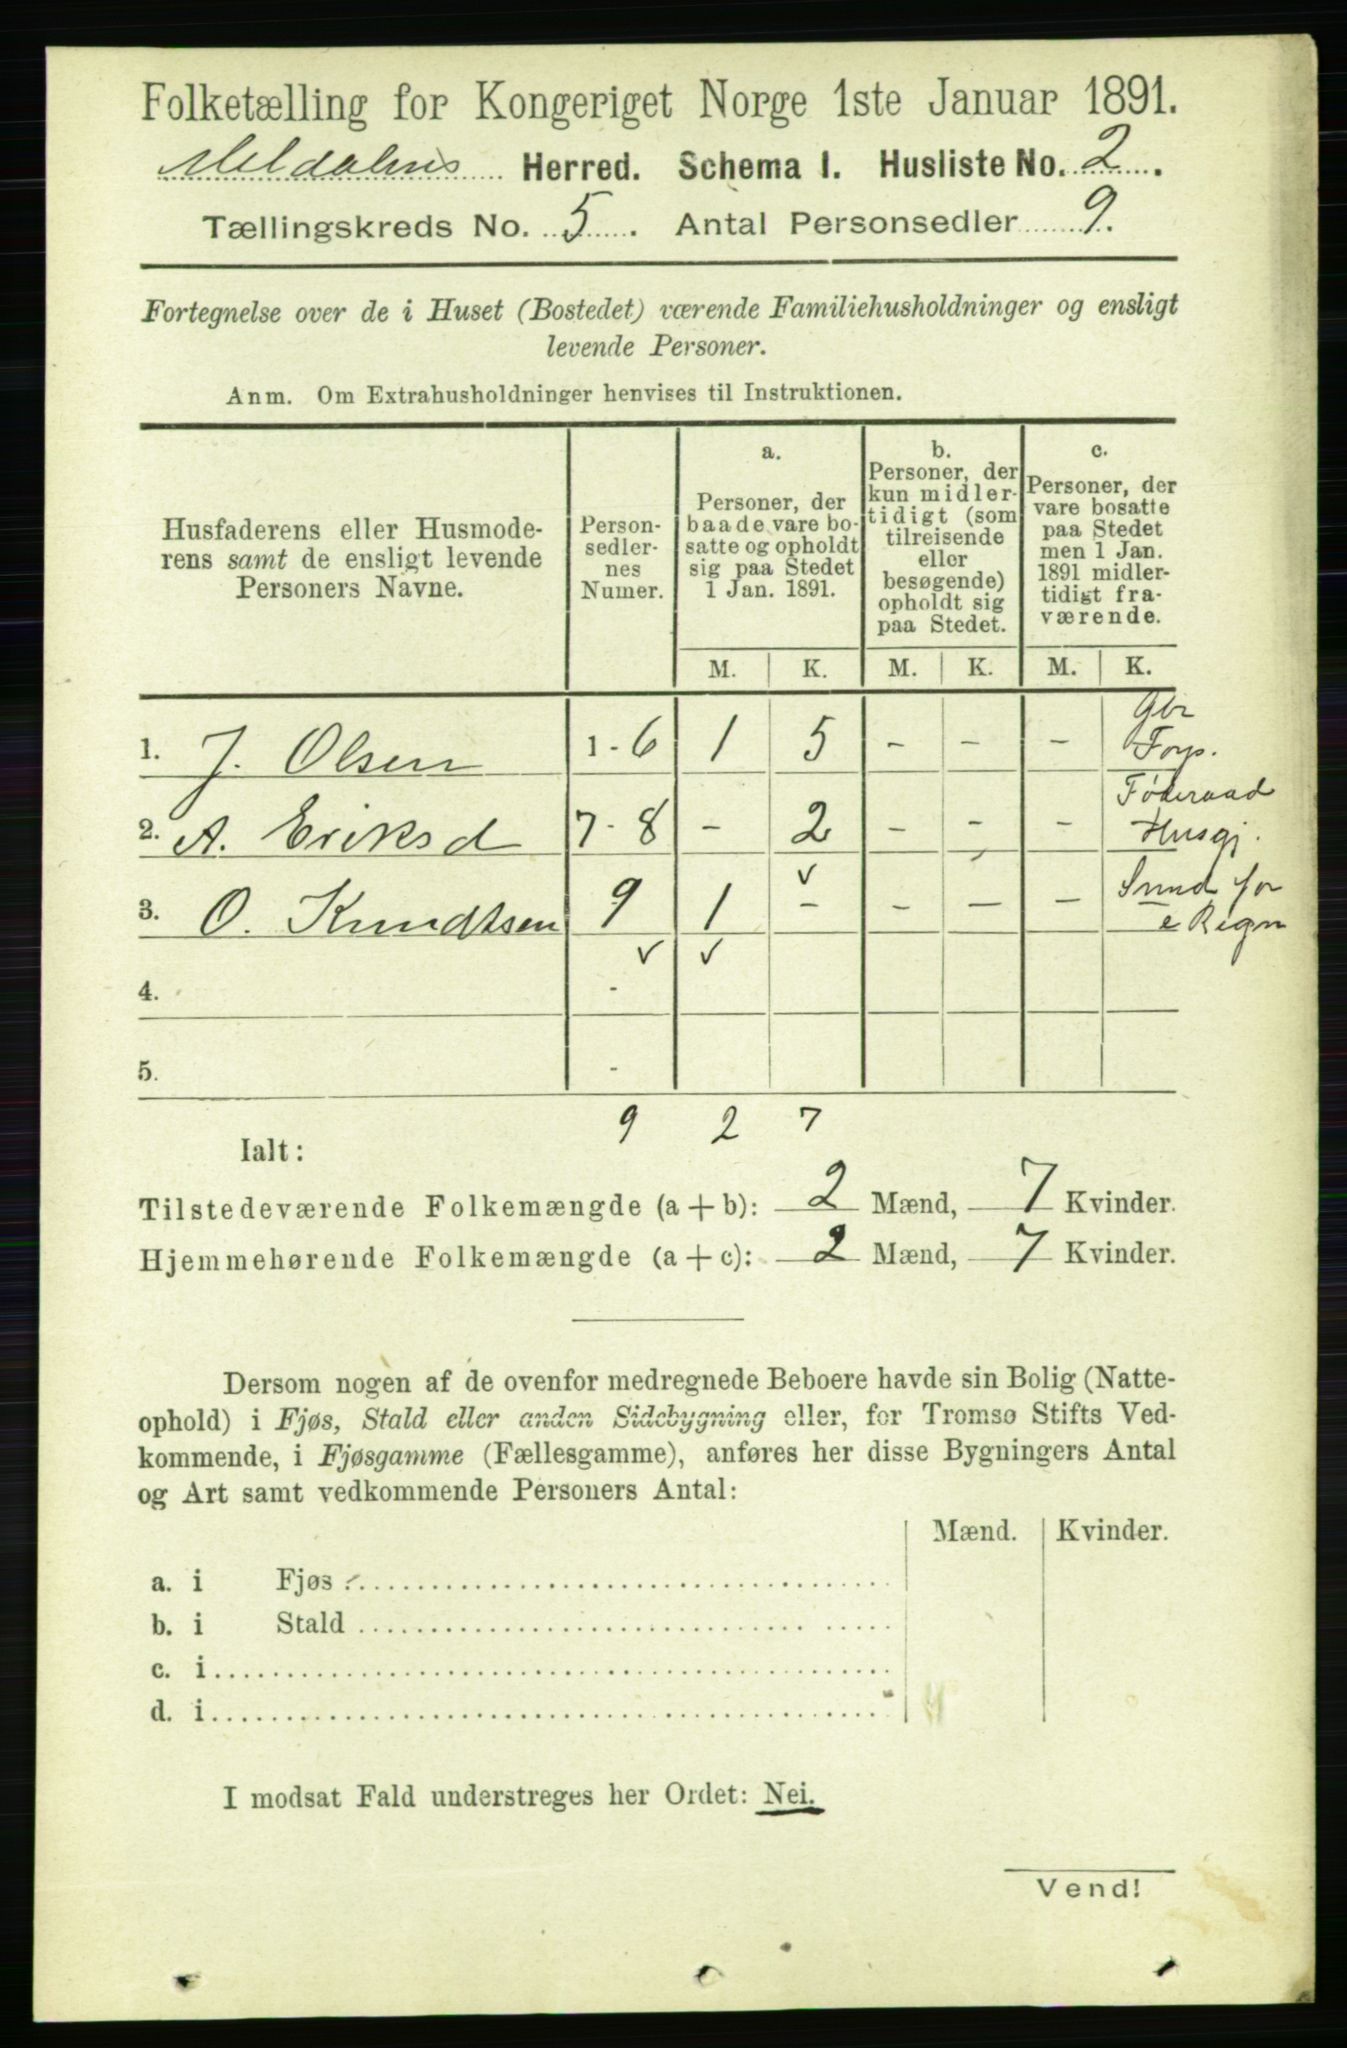 Folketælling for Kongeriget Norge 1ste Januar 1891.
Meldalens Herred. Schema I. Husliste No. 2.
Tællingskreds No. 5. Antal Personsedler 9.
Fortegnelse over de i Huset (Bostedet) værende Familiehusholdninger og ensligt
levende Personer.
Anm. Om Extrahusholdninger henvises til Instruktionen.
Husfaderens eller Husmode-
rens samt de ensligt levende
Personers Navne.
Person-
sedler-
nes
Numer.
a.
Personer, der
baade vare bo-
satte og opholdt
sig paa Stedet
1 Jan. 1891.
b.
Personer, der
kun midler-
tidigt (som
tilreisende
eller
besøgende)
opholdt sig
paa Stedet.
c.
Personer, der
vare bosatte
paa Stedet
men 1 Jan.
1891 midler-
tidigt fra-
værende.
M. K. M. K. M. K.
Gbr
1. J. Olsen 1 - 6 1 5 - - - Forp.
Føderaad
2. A. Eriksd 7 - 8 - 2 - - - Husgj.
3. O. Knudtsen 9 1 - - - - Smed for
e Regn
4. -
5. -
9 2 7
Ialt:
Tilstedeværende Folkemængde (a + b): 2 Mænd, 7 Kvinder.
Hjemmehørende Folkemængde (a + c): 2 Mænd, 7 Kvinder.
Dersom nogen af de ovenfor medregnede Beboere havde sin Bolig (Natte-
ophold) i Fjøs, Stald eller anden Sidebygning eller, for Tromsø Stifts Ved-
kommende, i Fjøsgamme (Fællesgamme), anføres her disse Bygningers Antal
og Art samt vedkommende Personers Antal:
Mænd. Kvinder.
a. i Fjøs
b. i Stald
c. i
d. i
I modsat Fald understreges her Ordet: Nei.
Vend!